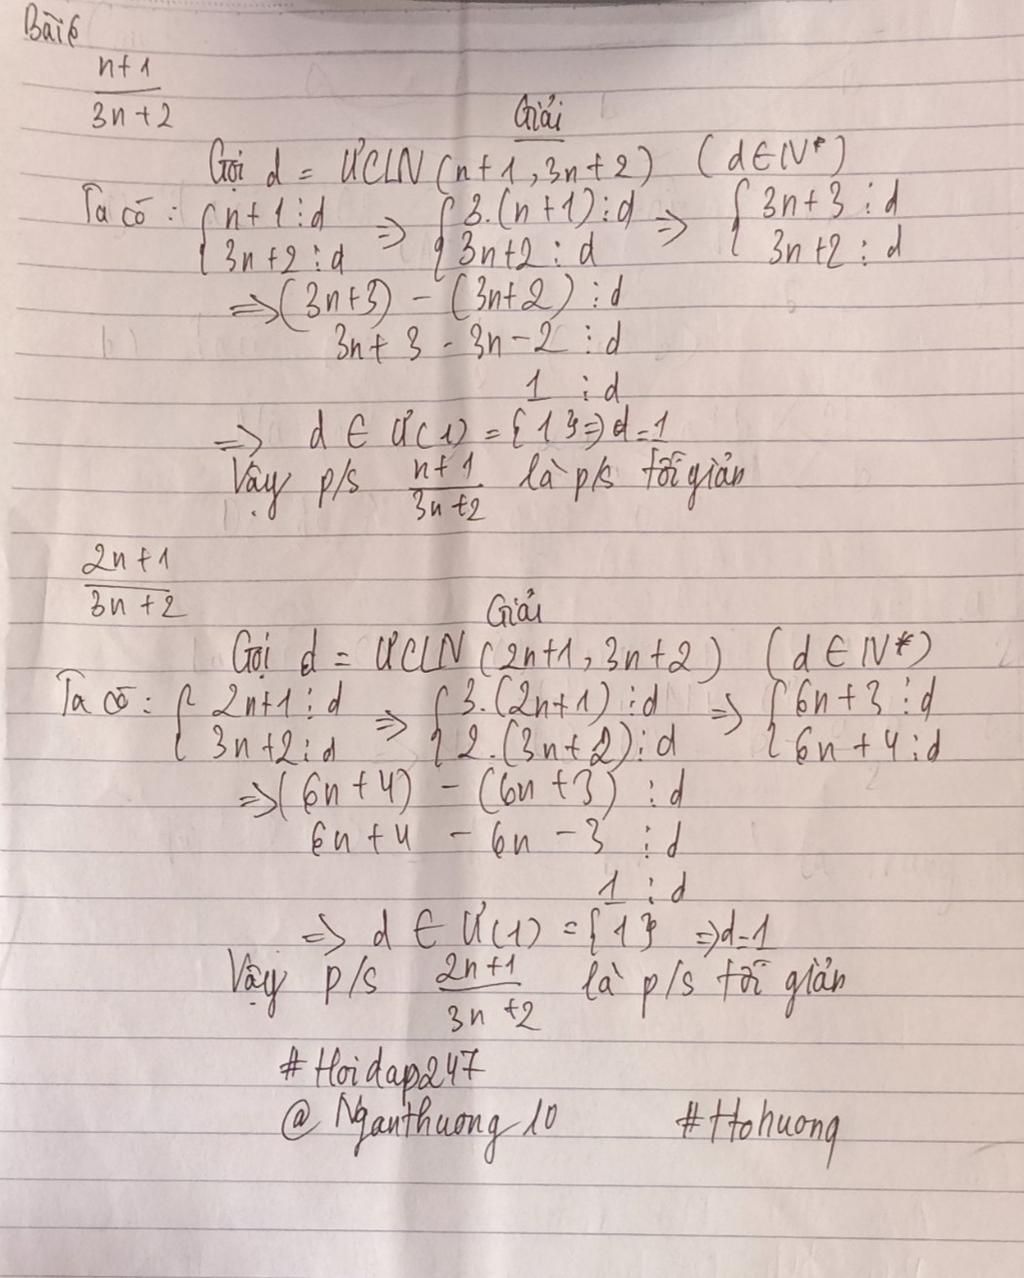 Bài 6
n+1
3n+2
Giải
Gọi d = ƯCLN (n+1, 3n+2) (d∈N*)
Ta có : { n+1 ⋮ d ⇒ { 3.(n+1) ⋮ d ⇒ { 3n+3 ⋮ d
3n+2 ⋮ d 3n+2 ⋮ d 3n+2 ⋮ d
⇒ (3n+3) - (3n+2) ⋮ d
3n+3 - 3n-2 ⋮ d
1 ⋮ d
⇒ d ∈ Ư(1) = {1} ⇒ d=1
Vậy p/s n+1/3n+2 là p/s tối giản
2n+1
3n+2
Giải
Gọi d = ƯCLN (2n+1, 3n+2) (d∈N*)
Ta có : { 2n+1 ⋮ d ⇒ { 3.(2n+1) ⋮ d ⇒ { 6n+3 ⋮ d
3n+2 ⋮ d 2.(3n+2) ⋮ d 6n+4 ⋮ d
⇒ (6n+4) - (6n+3) ⋮ d
6n+4 - 6n-3 ⋮ d
1 ⋮ d
⇒ d ∈ Ư(1) = {1} ⇒ d=1
Vậy p/s 2n+1/3n+2 là p/s tối giản
#Hoidap247
@Nganthuong10 #Htohuong